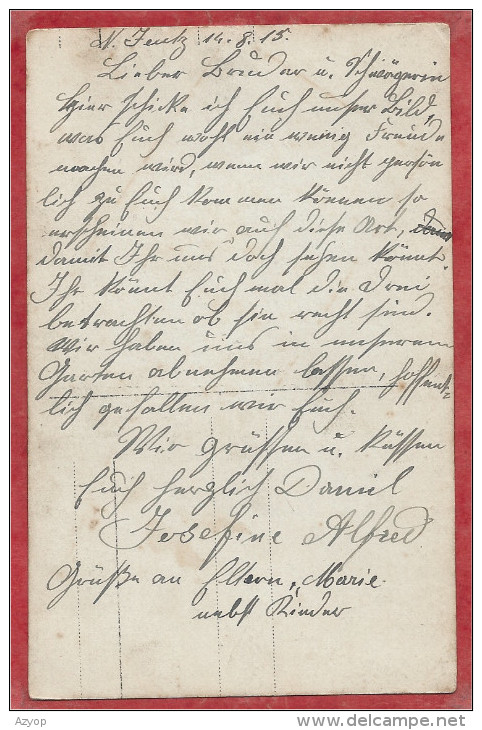 14.8.15.
Lieber Bruder u. Schwägerin
hier schicke ich Euch unser Bild,
was Euch wohl ein wenig Freude
machen wird, wenn wir nicht persön
lich zu Euch kommen können so
erscheinen wir auf diese Art,
damit Ihr uns doch sehen könnt
Ihr könnt Euch mal die Drei
betrachten ob sie recht sind.
Wir haben uns in unserem
Garten abnehmen lassen, hoffent-
lich gefallen wir Euch.
Wir grüssen u. küssen
Euch herzlich Daniel
Josefine Alfred
Grüße an Eltern, Marie
nebst Kinder
Azyop
www.delcampe.net